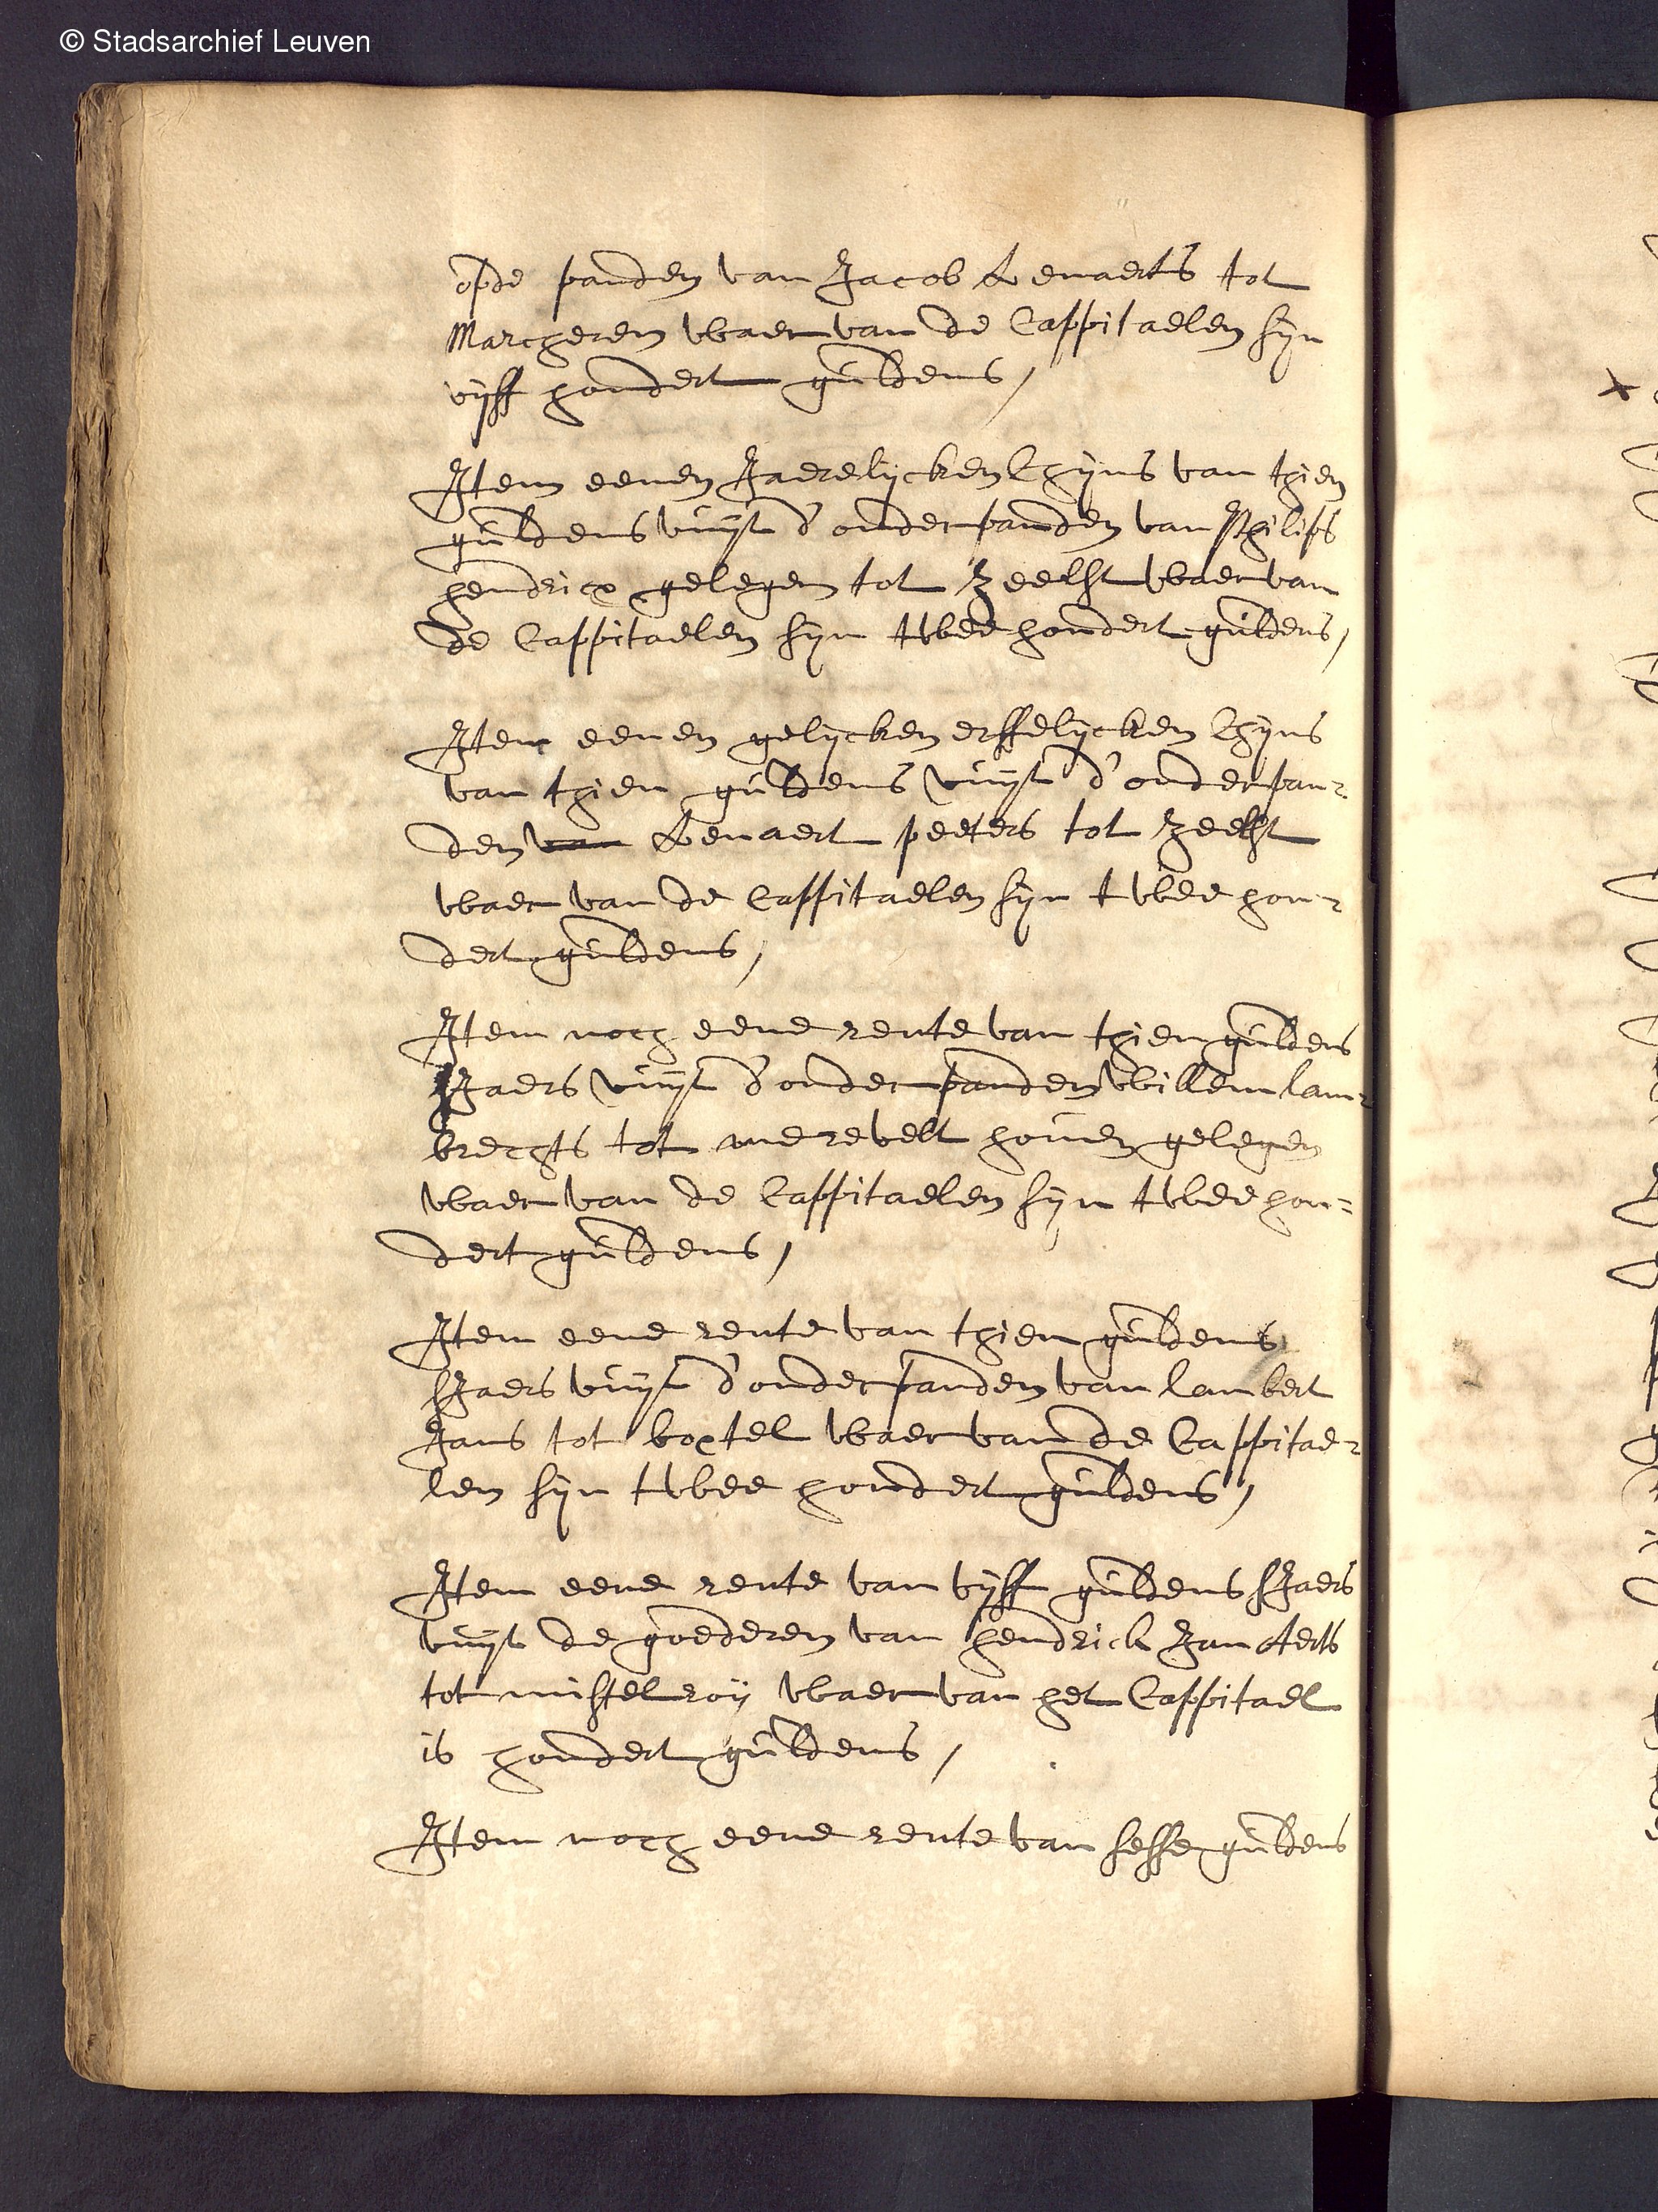 © Stadsarchief Leuven
opde panden van Jacob Lenaerts tot
Marcheren waer van de Cappitaelen syn
vyff hondert guldens,
Item eenen Jaerelycken Chyns van thien
guldens vuyt d'onderpanden van Philips
hendricx gelegen tot Zeelst waer van
de Cappitaelen syn twee hondert guldens,
Item eenen gelycken erffelycken Chyns
van thien guldens vuyt d'onderpan-
den van Lenaert peeters tot Zeelst
waer van de Cappitaelen syn twee hon-
dert guldens,
Item noch eene rente van thien guldens
sJaers vuyt d'onderpanden willem lam-
brechts tot merevelt hoven gelegen
waer van de Cappitaelen syn twee hon=
dert guldens,
Item eene rente van thien guldens
sJaers vuyt d'onderpanden van lambert
Jans tot boxtel waer van de Cappitae-
len syn twee hondert guldens,
Item eene rente van vyff guldens sJaers
vuyt de goederen van hendrick Jan Aerts
tot mistelroy waer van het Cappitael
is hondert guldens,
Item noch eene rente van sesse guldens